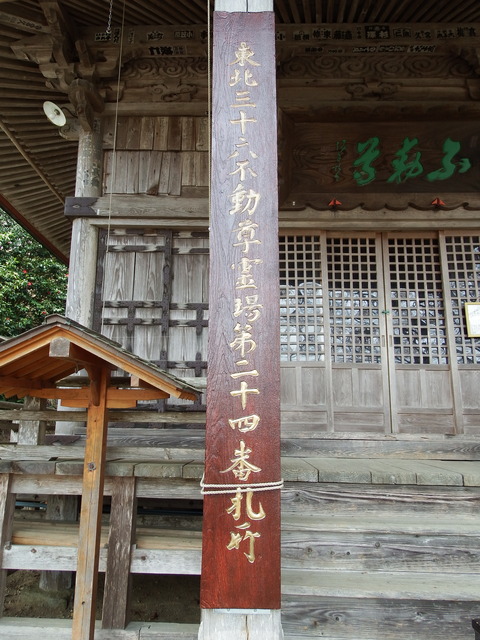 東北三十六不動尊霊場第二十四番札所
不動尊